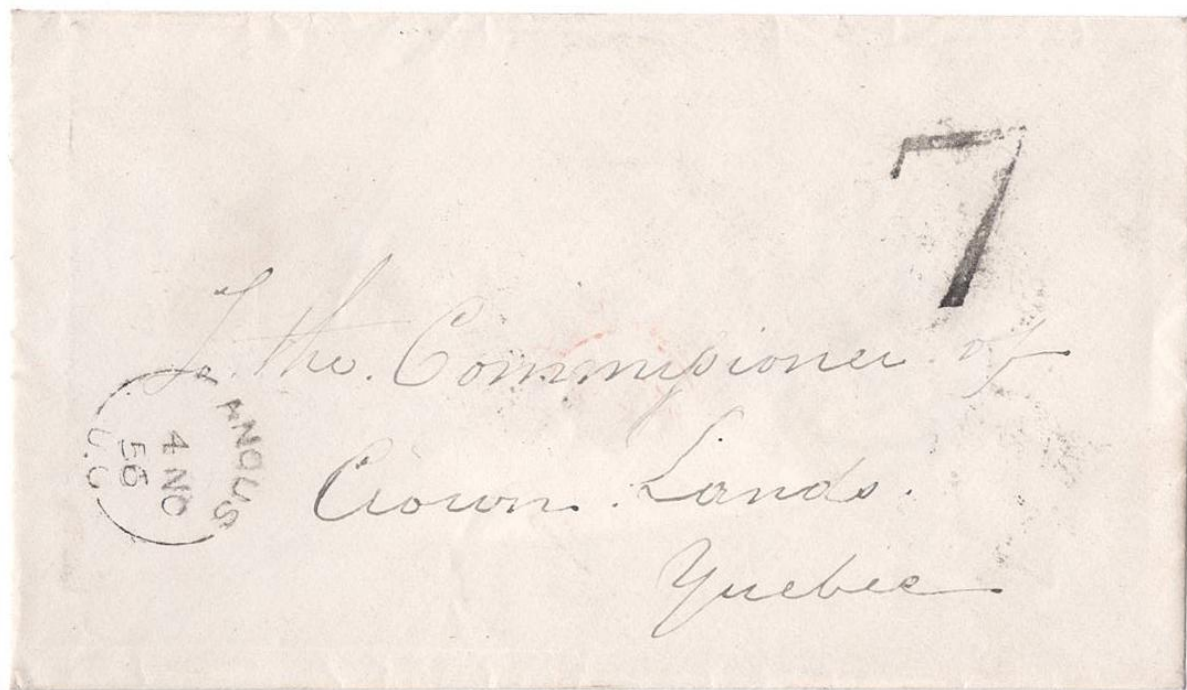 7
To. the. Commissioner of
Crown. Lands.
Quebec
ANGUS
4 NO
U.C